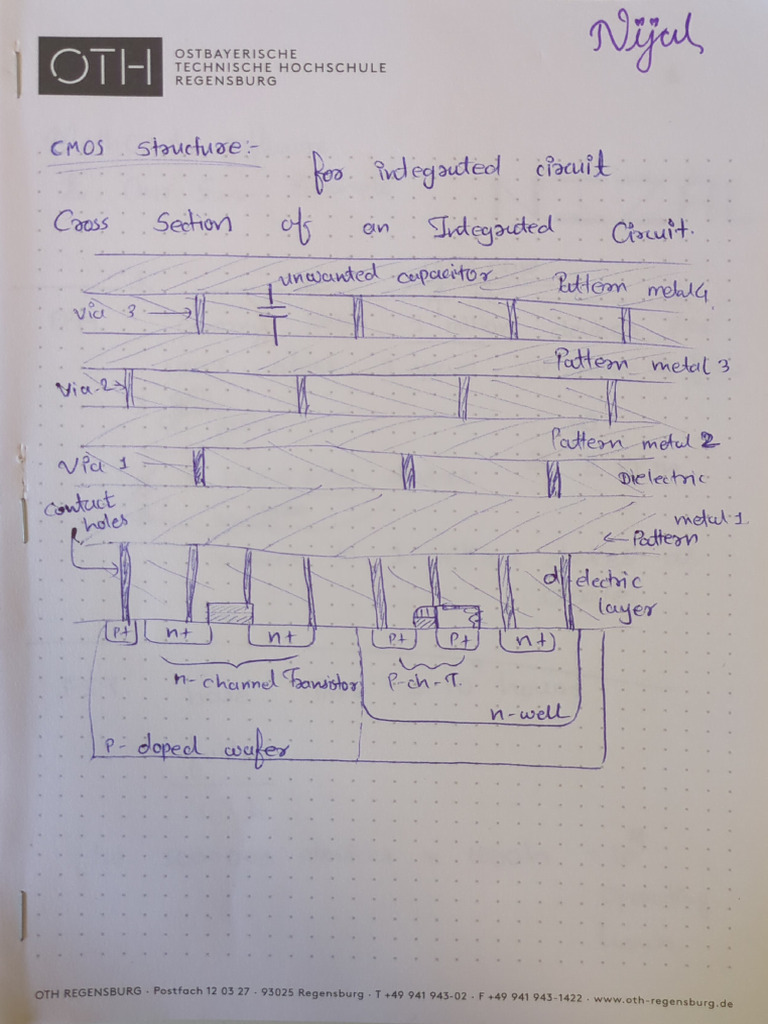 Nijal
OTH
OSTBAYERISCHE
TECHNISCHE HOCHSCHULE
REGENSBURG
CMOS Structure:-
for integrated circuit
Cross Section of an Integrated Circuit.
unwanted capacitor
Pattern metal 4
Via 3
Pattern metal 3
Via 2
Pattern metal 2
Via 1
Dielectric
contact
holes
metal 1.
Pattern
dielectric
layer
P+ n+ n+ P+ P+ n+
n-channel Transistor
P-ch-T.
n-well
P-doped wafer
OTH REGENSBURG · Postfach 12 03 27 · 93025 Regensburg · T +49 941 943-02 · F +49 941 943-1422 · www.oth-regensburg.de